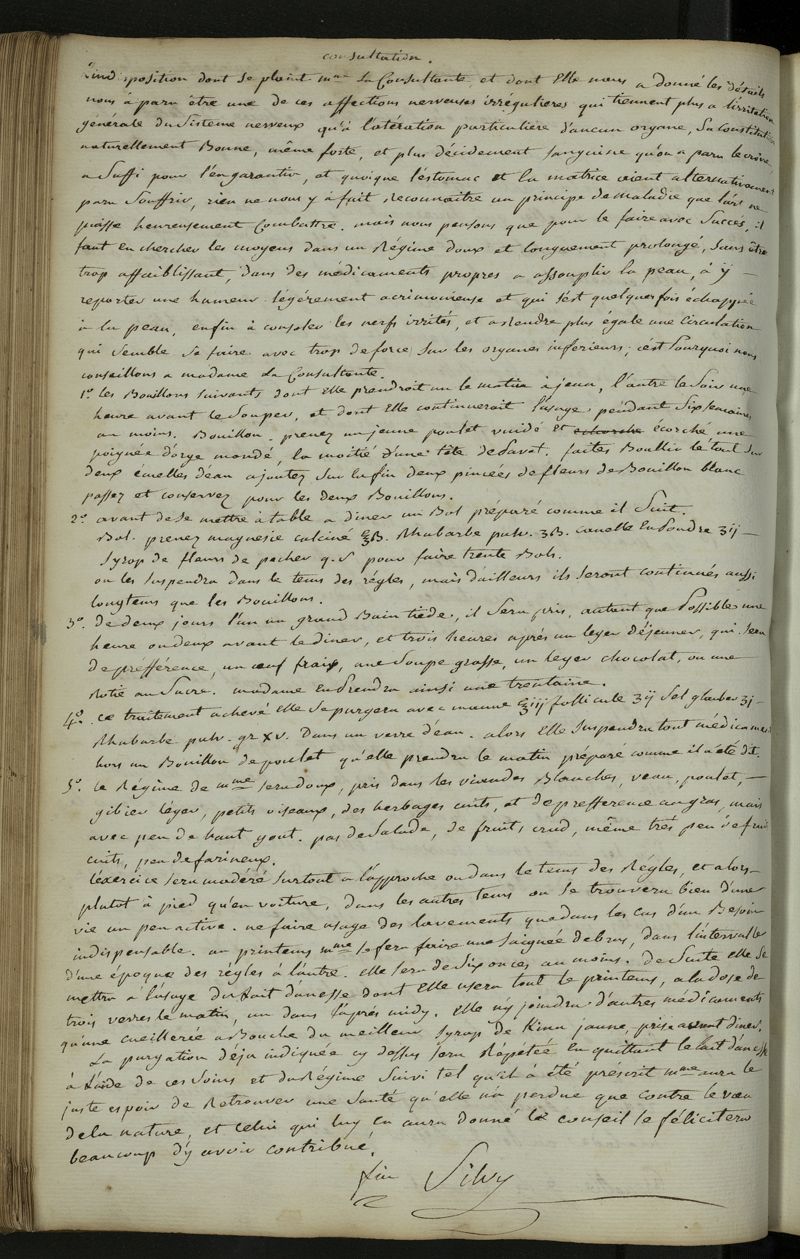 consultation.
L'indisposition dont se plaint mme La Consultante, et dont Elle nous a donné les détails
nous à paru être une de ces affections nerveuses irrégulieres qui tiennent plus a l'irritation
générale du Sisteme nerveux qu'à l'altération particuliere d'aucun organe, Sa Constitution
naturellement Bonne, même forte, et plus décidement sanguine qu'on a paru le croire
a Suffi pour l'en garantir, et quoique l'éstomac et la matrice aient alternativement
paru Souffrir, rien ne nous y à fait reconnaitre un principe de maladie que l'art ne
puisse heureusement Combattre. mais nous pensons que pour le faire avec Succès, il
faut en chercher les moyens dans un Régime doux et longuement prolongé, Sans être
trop affaiblissant, dans des médicaments propres a assouplir la peau, à y —
reporter une humeur légérement acrimonieuse et qui s'est quelques fois échappée
à la peau, enfin à consoler les nerfs irrités, et a rendre plus égale une Circulation
qui Semble Se faire avec trop de force Sur les organes inferieurs; c'est Pourquoi nous
conseillons a madame La Consultante.
1º les Bouillons Suivants dont elle prendroit un le matin à jeun, l'autre le Soir une
heure avant le Souper, et dont Elle continueroit l'usage pendant Six Semaines
au moins. Bouillon. prenez un jeune poulet vuidé et écorché une
poignée d'orge mondé, la moitié d'une tête de Pavot. faites Bouillir le tout Sur
deux écuelles d'eau ajoutez Sur la fin deux pincées de fleurs de Bouillon blanc
passez et conservez pour les deux Bouillons.
2º avant de Se mettre à table a diner un Bol préparé comme il Suit.
Bol. prenez magnesie calciné ℥ß. Rhubarbe pulv. ʒß. canelle En Poudre ʒij —
Syrop de fleurs de pecher q. S pour faire trente Bols.
on les Suspendra dans le tems des régles, mais d'ailleurs ils Seront continués aussi
longtems que les Bouillons.
3º. De deux jours l'un un grand Bain tiéde, il Sera pris, autant que Possible une
heure ou deux avant le diner, et trois heures après un leger déjeuner, qui Sera
de prefférence, un œuf frais, une Soupe grasse, un leger chocolat, ou une
Rotie au Sucre. madame En Prendra ainsi une trentaine.
4º. ce traitement achevé elle Se purgera avec manne ℥iij follicule ʒij Sel glauber ʒj —
Rhubarbe pulv. gr XV. Dans un verre d'eau. alors Elle Suspendra tout médicament
hors un Bouillon de poulet qu'elle prendra le matin préparé comme il a été dit.
5º. Le Régime de mme Sera doux, pris dans les viandes Blanches, veau, poulet, —
gibier léger, petits oiseaux, des herbages cuits, et de prefférence au gras, mais
avec peu de haut gout. pas de Salade, de fruits crud, même très peu de fruits
cuits, peu de farineux.
L'éxercice Sera modéré Surtout a l'approche ou dans le tems des Régles, et alors —
plutot à pied qu'en voiture, dans les autres tems on Se trouvera bien d'une
vie un peu active. ne faire usage des lavements que dans les cas d'un Besoin
indispensable. au printems mme Se fera faire une Saignée de bras, dans l'intervalle
d'une époque des régles à l'autre. elle Sera de Six onces au moins. De Suite elle Se
mettra à l'usage du Lait d'anesse dont Elle usera tout le printems, a la dose de
trois verres le matin, un dans l'après midy. elle n'y joindra d'autres médicaments
qu'une cueillerée a Bouche du meilleur Syrop de Kina jaune, prise avant diner.
La purgation déja indiquée cy dessus Sera Répétée en quittant le Lait d'anesse
à L'aide de ces Soins et du Régime Suivi tel qu'il à été prescrit mme aura le
juste espoir de Retrouver une Santé qu'elle n'a perdue que contre le vœu
de la nature, et Celui qui luy en aura donné le conseil Se félicitera
beaucoup d'y avoir contribué.
fin Silvy